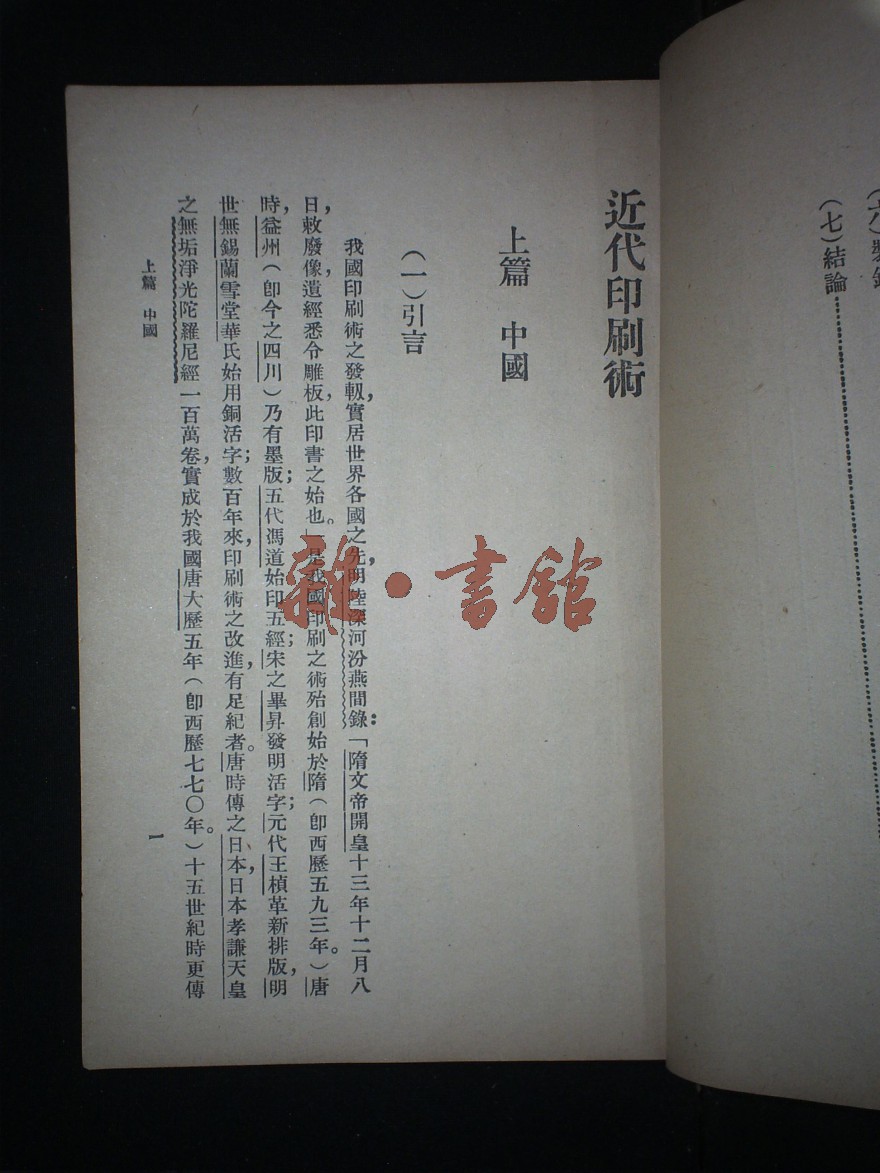 (七)結論
近代印刷術
上篇 中國
(一)引言
我國印刷術之發軔,實居世界各國之先,明陸深河汾燕間錄:「隋文帝開皇十三年十二月八
日,敕廢像,遺經悉令雕板,此印書之始也。」是我國印刷之術殆創始於隋(卽西歷五九三年。)唐
時,益州(卽今之四川)乃有墨版;五代馮道始印五經;宋之畢昇發明活字;元代王楨革新排版,明
世無錫蘭雪堂華氏始用銅活字;數百年來,印刷術之改進,有足紀者。唐時傳之日本,日本孝謙天皇
之無垢淨光陀羅尼經一百萬卷,實成於我國唐大歷五年(卽西歷七七〇年。)十五世紀時更傳
上篇 中國
一
雜·書館